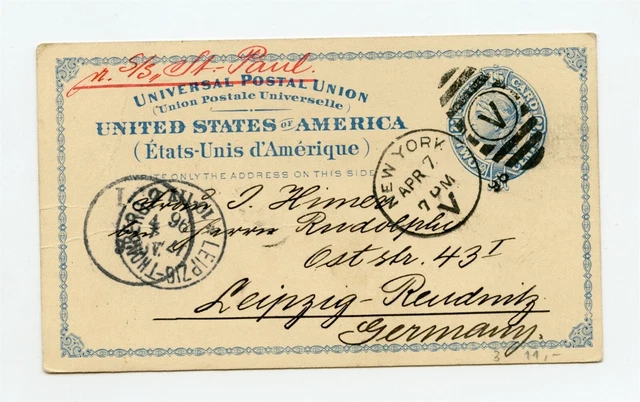 p. S/S. St. Paul.
UNIVERSAL POSTAL UNION
(Union Postale Universelle)
UNITED STATES OF AMERICA
(États-Unis d'Amérique)
WRITE ONLY THE ADDRESS ON THIS SIDE
J. Himer
Herrn Rudolph
Oststr. 43 I
Leipzig-Reudnitz
Germany.
NEW YORK
APR 7
7 PM
V
98
V
CARD
LEIPZIG
96
3 11,-